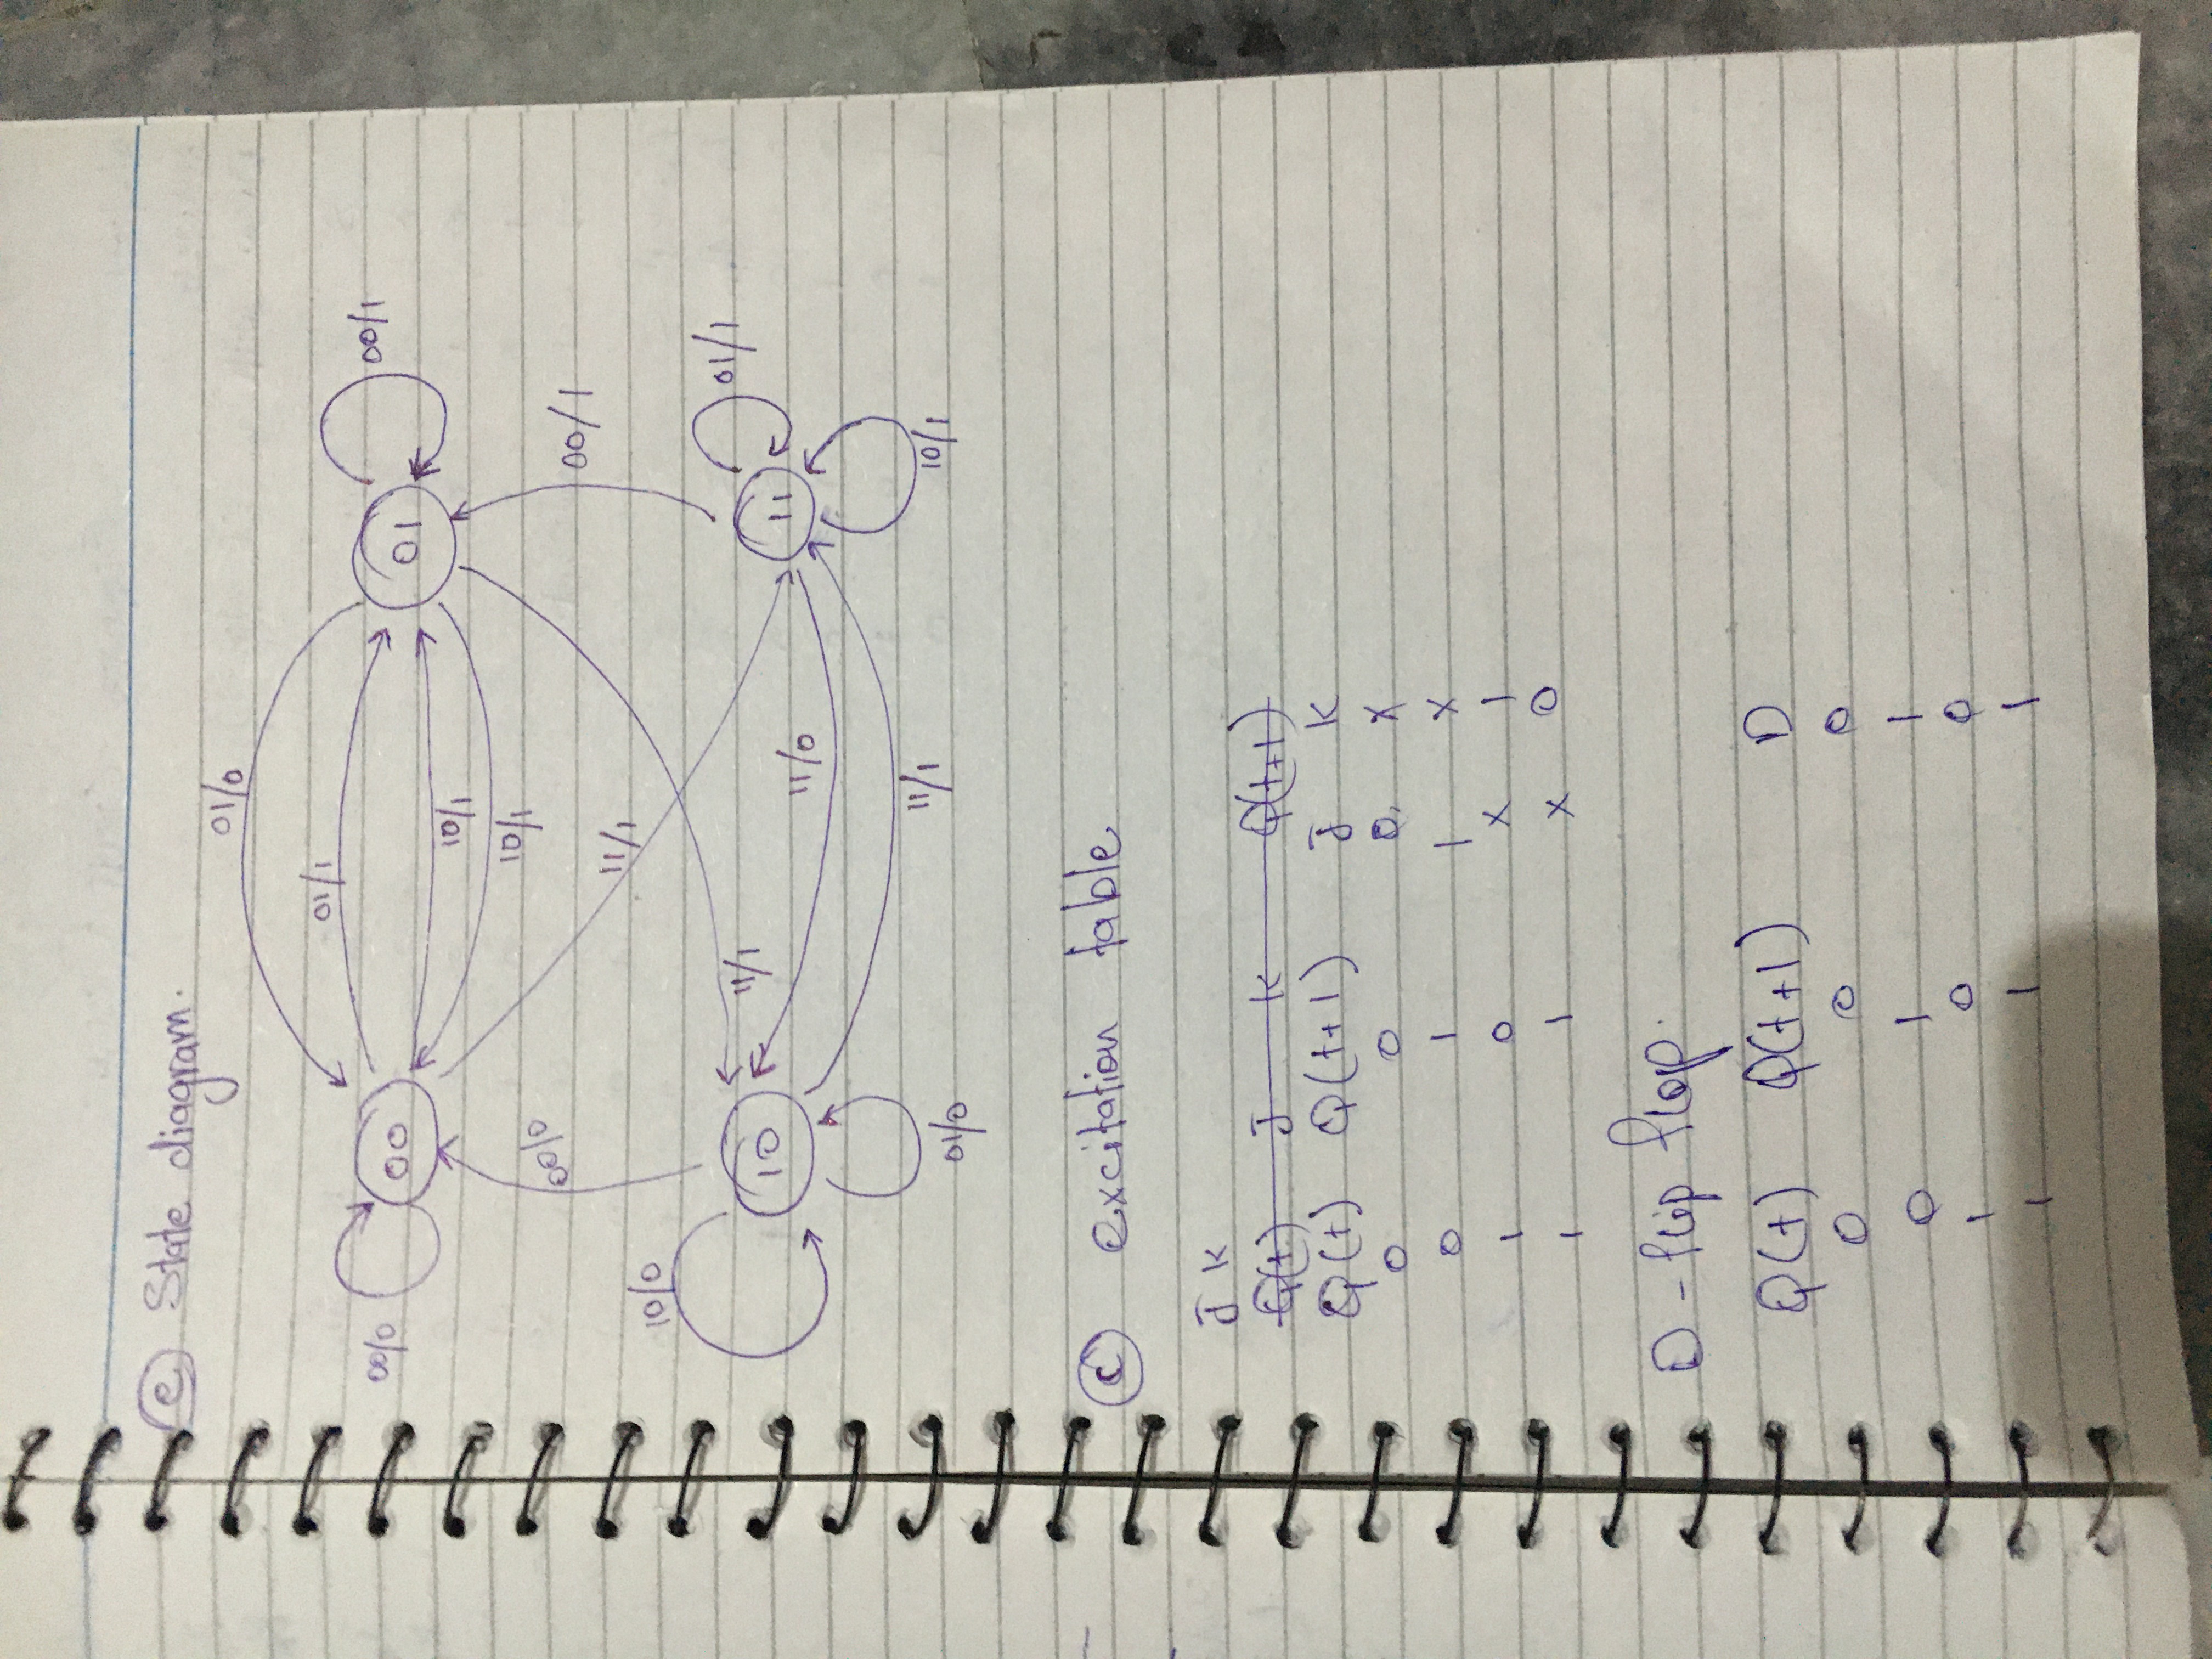 e State diagram.
01/0
01/1
00/0 00 01 00/1
10/1
10/1
00/0 00/1
11/1
10/0
01/1
11/1
10 11
11/0
11/1 10/1
01/0
c excitation table
J K
Q(t) J K Q(t+1)
Q(t) Q(t+1) J K
0 0 0 X
0 1 1 X
1 0 X 1
1 1 X 0
D - flip flop.
Q(t) Q(t+1) D
0 0 0
0 1 1
1 0 0
1 1 1